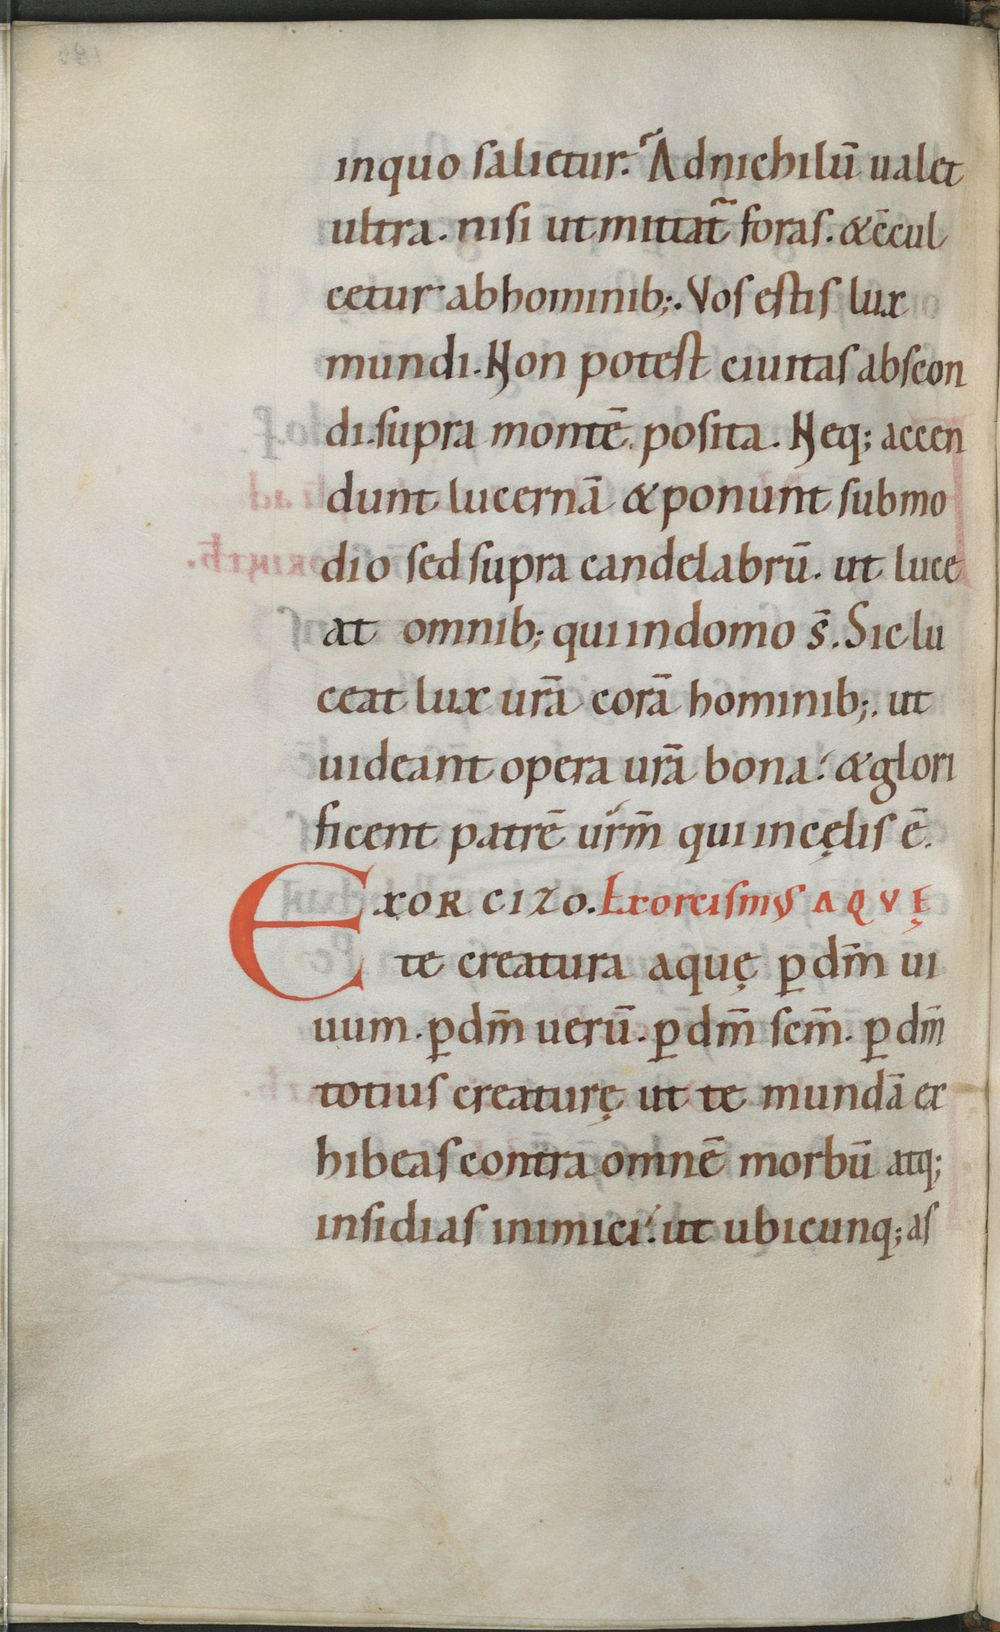 inquo salietur. Adnichilū ualet
ultra. nisi utmittat̄ foras. &c̄cul
cetur abhominib;. Vos estis lux
mundi. Non potest ciuitas abscon
di. supra montē. posita. Neq; accen
dunt lucernā &ponunt submo
dio sed supra candelabrū. ut luce
at omnib; qui indomo s̄. Sic lu
ceat lux ur̄a corā hominib;. ut
uideant opera ur̄a bona. &glori
ficent patrē ur̄m qui incęlis ē.
EXORCIZO. Exorcismus AQVĘ
te creatura aquę ꝑ dm̄ ui
uum. ꝑ dm̄ uerū. ꝑ dm̄ scm̄. ꝑ dm̄
totius creaturę ut te mundā ex
hibeas contra omnē morbū atq;
insidias inimici. ut ubicunq; as